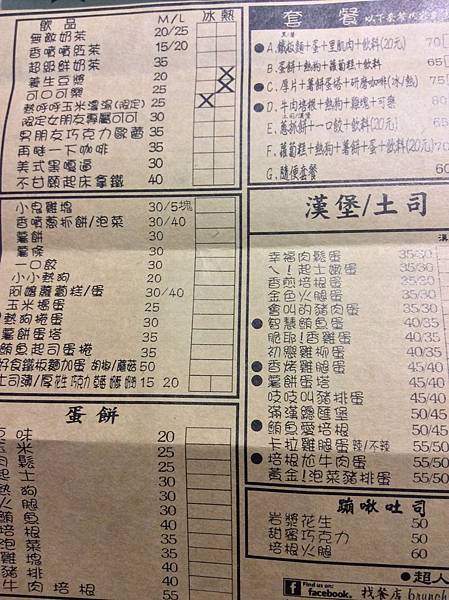 飲品 M/L 冰 熱
無敵奶茶 20/25
香噴噴奶茶 15/20
超級鮮奶茶 30
養生豆漿 20
可口可樂 25
熱呼呼玉米濃湯(限定) 25
限定女朋友專屬可可 30
男朋友巧克力歐蕾 35
再睡一下咖啡 35
美式黑嚕嚕 35
不甘願起床拿鐵 40
小鬼雞塊 30/5塊
香噴蔥抓餅/泡菜 30/40
薯餅 30
薯條 30
一口餃 30
小小熱狗 20
阿嬤蘿蔔糕/蛋 30/40
玉米攤蛋 30
熱狗捲蛋 30
薯餅蛋塔 35
鮪魚起司蛋捲 35
好食鐵板麵加蛋 胡椒/蘑菇 50
15 20
蛋餅
味 20
玉米 25
肉鬆 25
起士 25
熱狗 30
火腿 30
鮪魚 40
培根 35
泡菜 35
雞塊 40
豬排 40
牛肉培根 55
套餐
A.鐵板麵+蛋+里肌肉+飲料(20元) 70
B.蛋餅+熱狗+蘿蔔糕+飲料 65
C.厚片+薯餅蛋塔+研磨咖啡(冰/熱) 75
D.牛肉培根+熱狗+雞塊+可樂
E.蔥抓餅+一口餃+飲料(20元) 65
F.蘿蔔糕+熱狗+薯餅+蛋+飲料(20元) 70
G.隨便套餐 60
漢堡/土司
幸福肉鬆蛋 35/30
ㄟ!起士嫩蛋 35/30
香煎培根蛋 35/30
金色火腿蛋 35/30
會叫的豬肉蛋 35/30
智慧鮪魚蛋 40/35
脆耶!香雞蛋 40/35
初戀雞柳蛋 40/35
香烤雞腿蛋 50/45
薯餅蛋塔 40/35
吱吱叫豬排蛋 50/45
滿漢總匯堡 50/45
鮪魚愛培根 50/45
卡拉雞腿蛋 辣/不辣 55/50
培根尬牛肉蛋 55/50
黃金!泡菜豬排蛋 55/50
蹦啾吐司
岩漿花生 50
甜蜜巧克力 50
培根火腿 60
超人
Find us on:
facebook. 找餐店 brunch